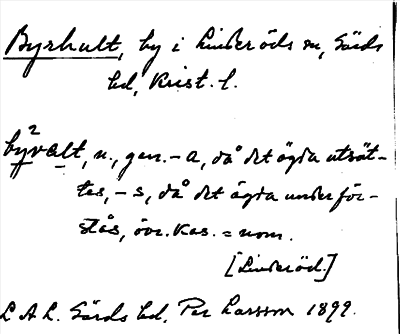 Byrhult, by i Linderöds sn, Gärds
hd, Krist. l.
by²valt, n., gen. -a, då det ägda utsät-
tes, -s, då det ägda underför-
stås, övr. kas. = nom.
[Linderöd.]
LAL. Gärds hd. Per Larsson 1899.